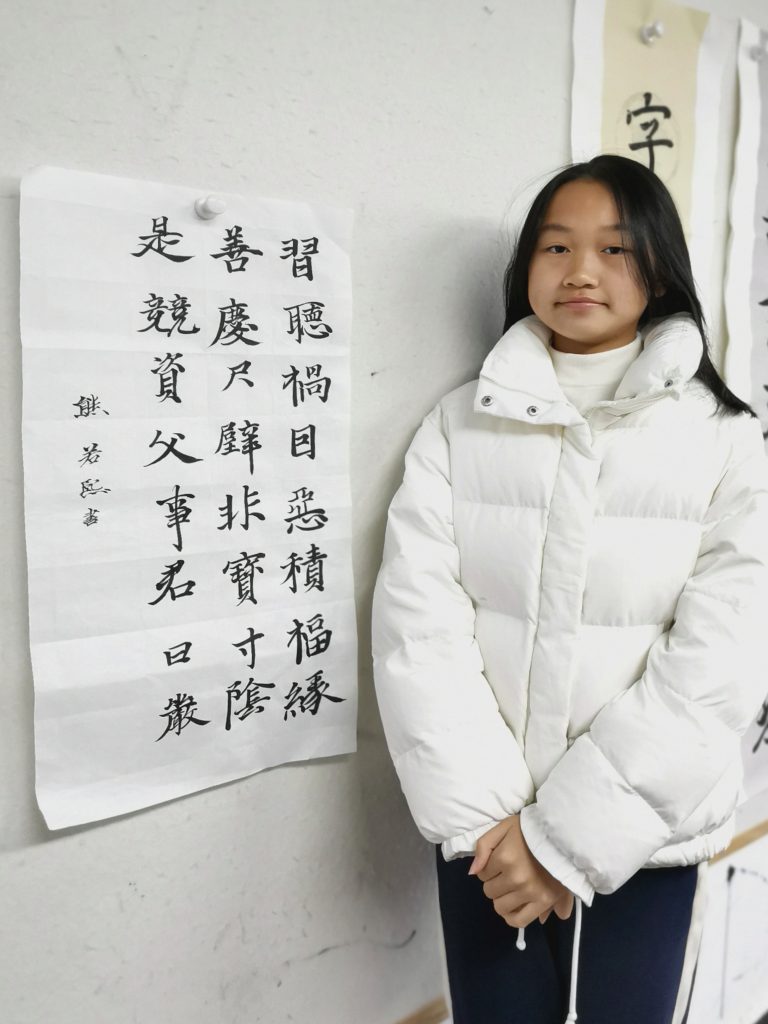 習聽禍因惡積福緣
善慶尺璧非寶寸陰
是競資父事君曰嚴
熊若熙書
字